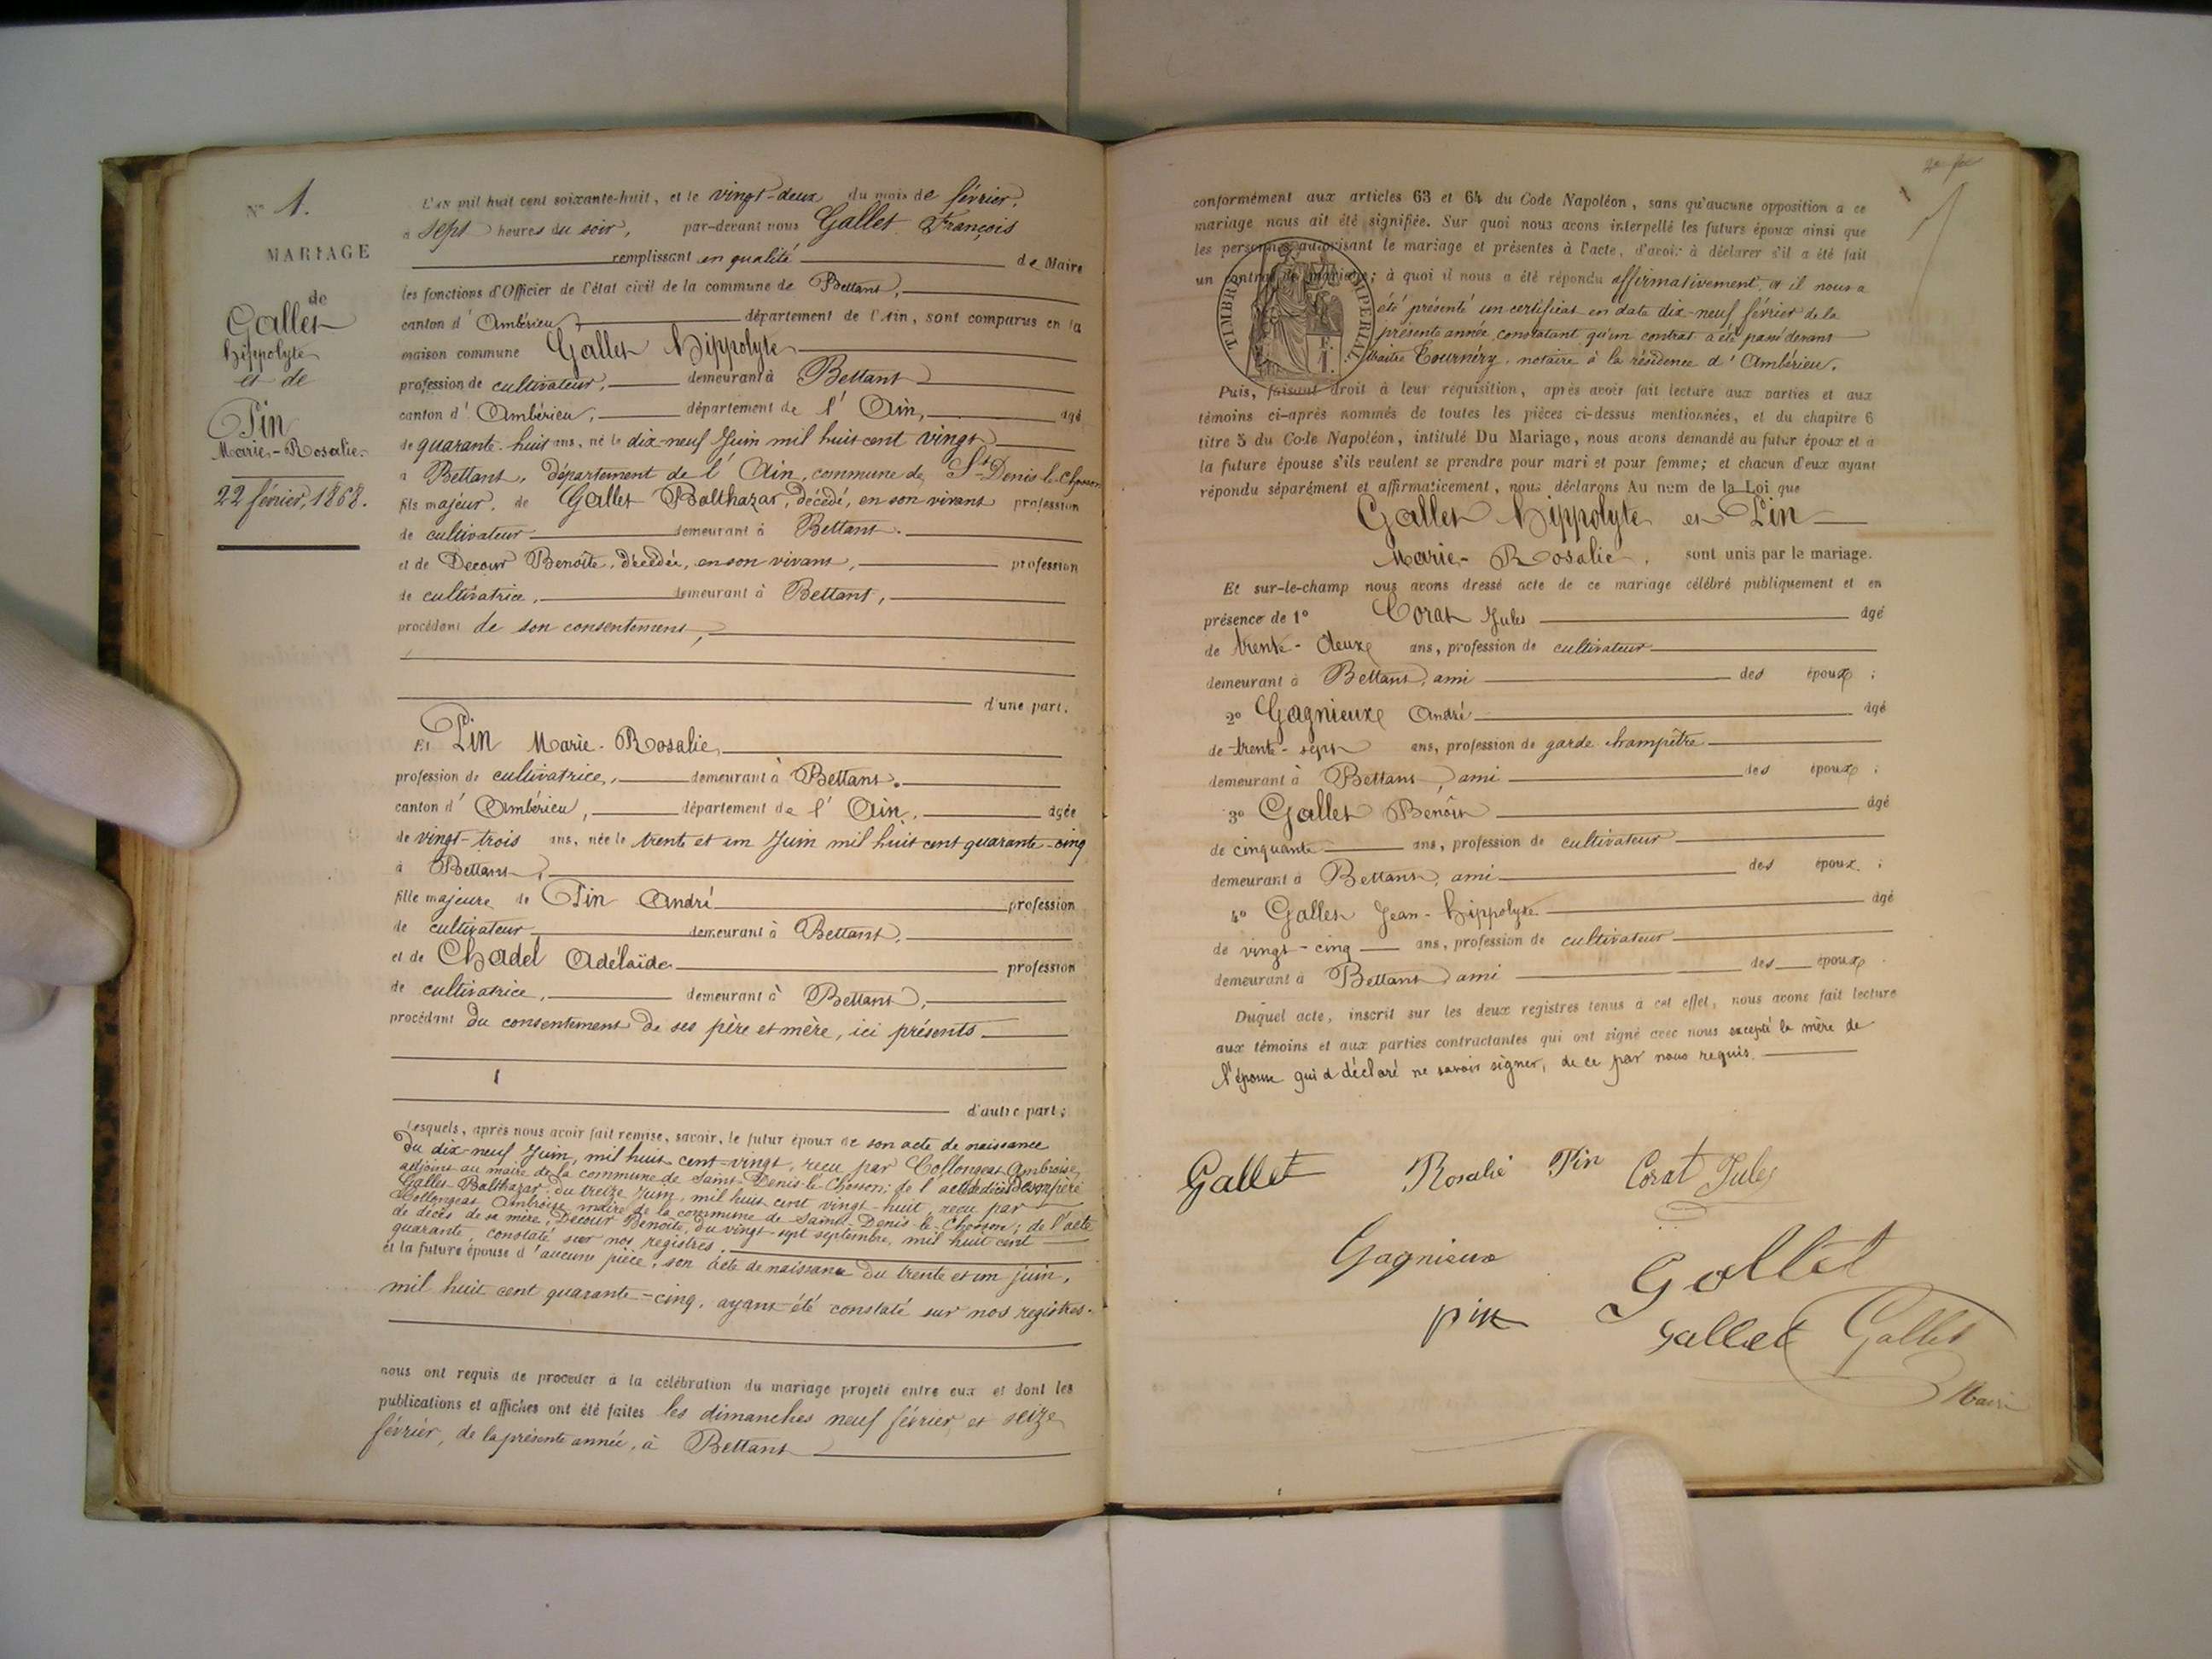 N° 1.
MARIAGE
de
Gallet
hippolyte
et de
Pin
Marie-Rosalie.
22 février, 1868.
L'an mil huit cent soixante-huit, et le vingt-deux du mois de février,
à sept heures du soir, par-devant nous Gallet François
remplissant en qualité de Maire
les fonctions d'Officier de l'état civil de la commune de Bettant,
canton d'Ambérieu, département de l'Ain, sont comparus en la
maison commune Gallet Hippolyte
profession de cultivateur, demeurant à Bettant
canton d'Ambérieu, département de l'Ain, âgé
de quarante-huit ans, né le dix-neuf Juin mil huit cent vingt
à Bettant, département de l'Ain, commune de St Denis-le-Chosson
fils majeur, de Gallet Balthazar, décédé, en son vivant profession
de cultivateur demeurant à Bettant.
et de Decour Benoîte, décédée, en son vivant, profession
de cultivatrice, demeurant à Bettant,
procédant de son consentement,
d'une part.
Et Pin Marie-Rosalie,
profession de cultivatrice, demeurant à Bettant.
canton d'Ambérieu, département de l'Ain, âgée
de vingt-trois ans, née le trente et un Juin mil huit cent quarante-cinq
à Bettant,
fille majeure de Pin André profession
de cultivateur demeurant à Bettant,
et de Chadel Adélaïde profession
de cultivatrice, demeurant à Bettant,
procédant du consentement de ses père et mère, ici présents
d'autre part;
Lesquels, après nous avoir fait remise, savoir, le futur époux de son acte de naissance
du dix-neuf Juin, mil huit cent-vingt, reçu par Collongeat Ambroise,
adjoint au maire de la commune de Saint-Denis-le-Chosson; de l'acte de décès de son père
Gallet Balthazar, du treize Juin, mil huit cent vingt-huit, reçu par
Collongeat Ambroise, maire de la commune de Saint-Denis-le-Chosson; de l'acte
de décès de sa mère, Decour Benoîte, du vingt-sept septembre, mil huit cent
quarante, constaté sur nos registres.
et la future épouse d'aucune pièce, son acte de naissance du trente et un juin,
mil huit cent quarante-cinq, ayant été constaté sur nos registres.
nous ont requis de procéder à la célébration du mariage projeté entre eux et dont les
publications et affiches ont été faites les dimanches neuf février et seize
février, de la présente année, à Bettant
conformément aux articles 63 et 64 du Code Napoléon, sans qu'aucune opposition a ce
mariage nous ait été signifiée. Sur quoi nous avons interpellé les futurs époux ainsi que
les personnes autorisant le mariage et présentes à l'acte, d'avoir à déclarer s'il a été fait
un contrat de mariage; à quoi il nous a été répondu affirmativement, et il nous a
été présenté un certificat en date dix-neuf février de la
présente année, constatant qu'un contrat a été passé devant
Maître Tournéry, notaire à la résidence d'Ambérieu.
TIMBRE IMPERIAL
Puis, faisant droit à leur réquisition, après avoir fait lecture aux parties et aux
témoins ci-après nommés de toutes les pièces ci-dessus mentionnées, et du chapitre 6
titre 5 du Code Napoléon, intitulé Du Mariage, nous avons demandé au futur époux et a
la future épouse s'ils veulent se prendre pour mari et pour femme; et chacun d'eux ayant
répondu séparément et affirmativement, nous déclarons Au nom de la Loi que
Gallet Hippolyte et Pin
Marie-Rosalie, sont unis par le mariage.
Et sur-le-champ nous avons dressé acte de ce mariage célébré publiquement et en
présence de 1° Corat Jules âgé
de trente-deux ans, profession de cultivateur
demeurant à Bettant, ami des époux;
2° Gagnieux André âgé
de trente-sept ans, profession de garde champêtre
demeurant à Bettant, ami des époux;
3° Gallet Benoît âgé
de cinquante ans, profession de cultivateur
demeurant à Bettant, ami des époux;
4° Gallet Jean-hippolyte âgé
de vingt-cinq ans, profession de cultivateur
demeurant à Bettant, ami des époux.
Duquel acte, inscrit sur les deux registres tenus à cet effet, nous avons fait lecture
aux témoins et aux parties contractantes qui ont signé avec nous excepté la mère de
l'épouse qui a déclaré ne savoir signer, de ce par nous requis.
Gallet Rosalie Pin Corat Jules
Gagnieux Gallet
pin Gallet Gallet
Maire